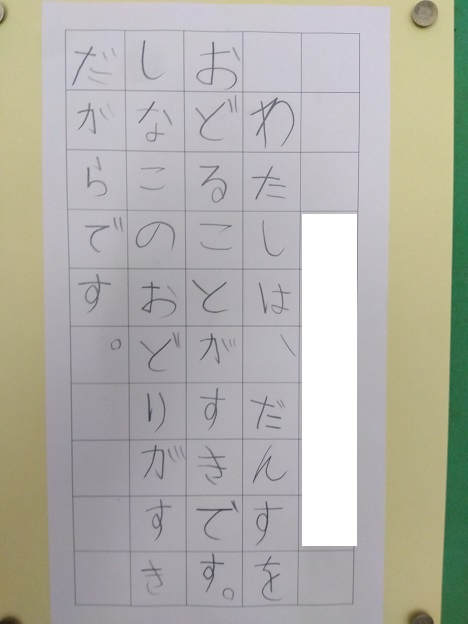 わたしは、だんすを
おどることがすきです。
しなこのおどりがすき
だがらです。